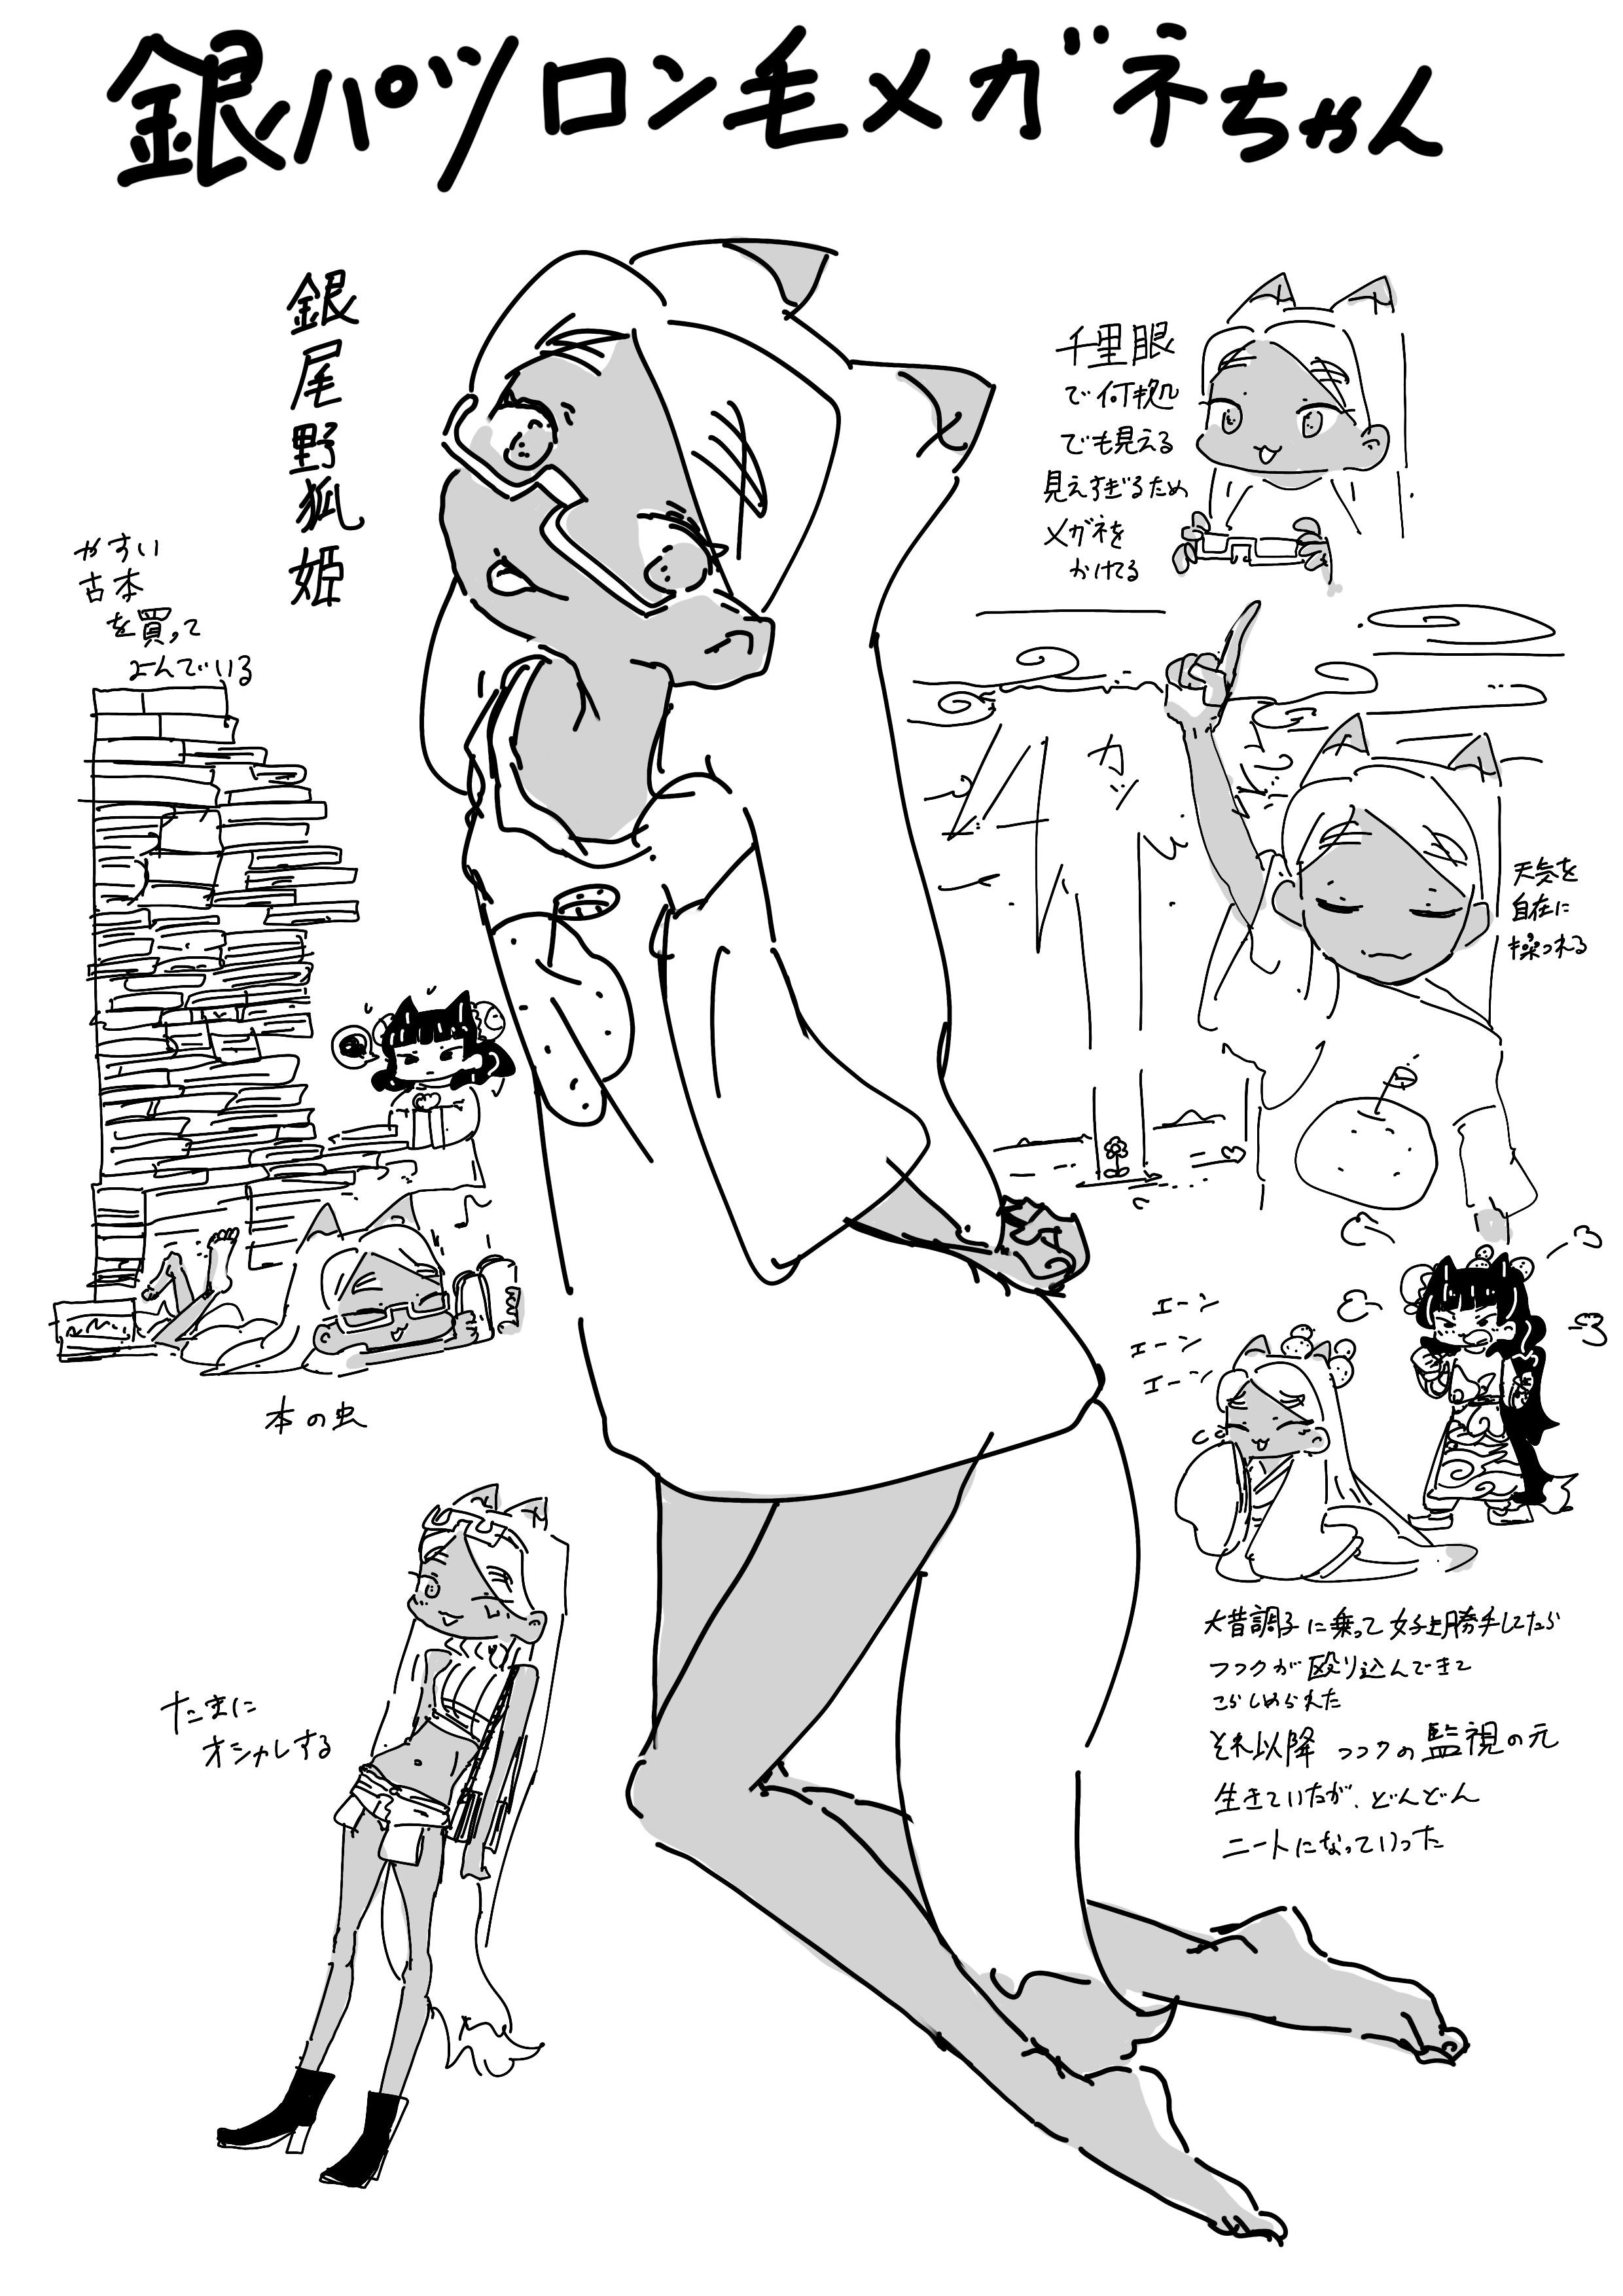 銀パツロン毛メガネちゃん
銀尾野狐姫
千里眼
で何拠
でも見える
見えすぎるため
メガネを
かけてる
やすい
古本
を買って
よんでいる
カッ
天気を
自在に
操つれる
本の虫
エーン
エーン
エーン
大昔調子に乗って好き勝手してたら
つつクが殴り込んできて
こらしめられた
それ以降つつクの監視の元
生きていたが、どんどん
ニートになっていった
たまに
オシャレする